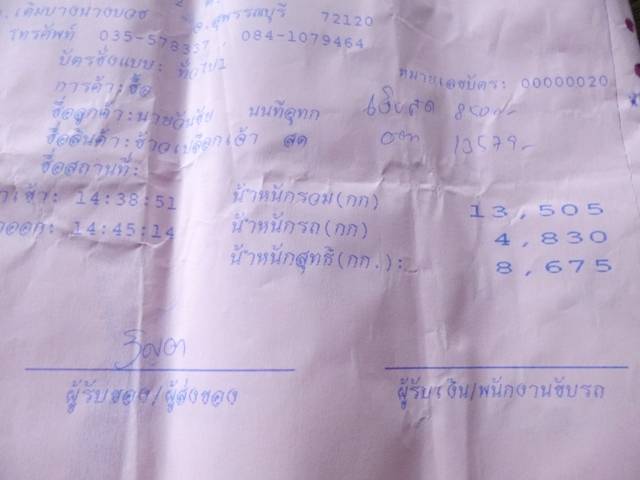 .เดิมบางนางบวช
จ.สุพรรณบุรี 72120
โทรศัพท์ 035-578337 084-1079464
บัตรชั่งแบบ: ทั่วไป1
หมายเลขบัตร: 00000020
การค้า:ซื้อ
ชื่อลูกค้า:นายวันชัย นนทีอุทก เงินสด
ชื่อสินค้า:ข้าวเปลือกเจ้า สด 13579-
ชื่อสถานที่:
เข้า: 14:38:51 น้ำหนักรวม(กก) 13,505
ออก: 14:45:14 น้ำหนักรถ(กก) 4,830
น้ำหนักสุทธิ(กก.): 8,675
ผู้รับของ/ผู้ส่งของ ผู้รับเงิน/พนักงานขับรถ